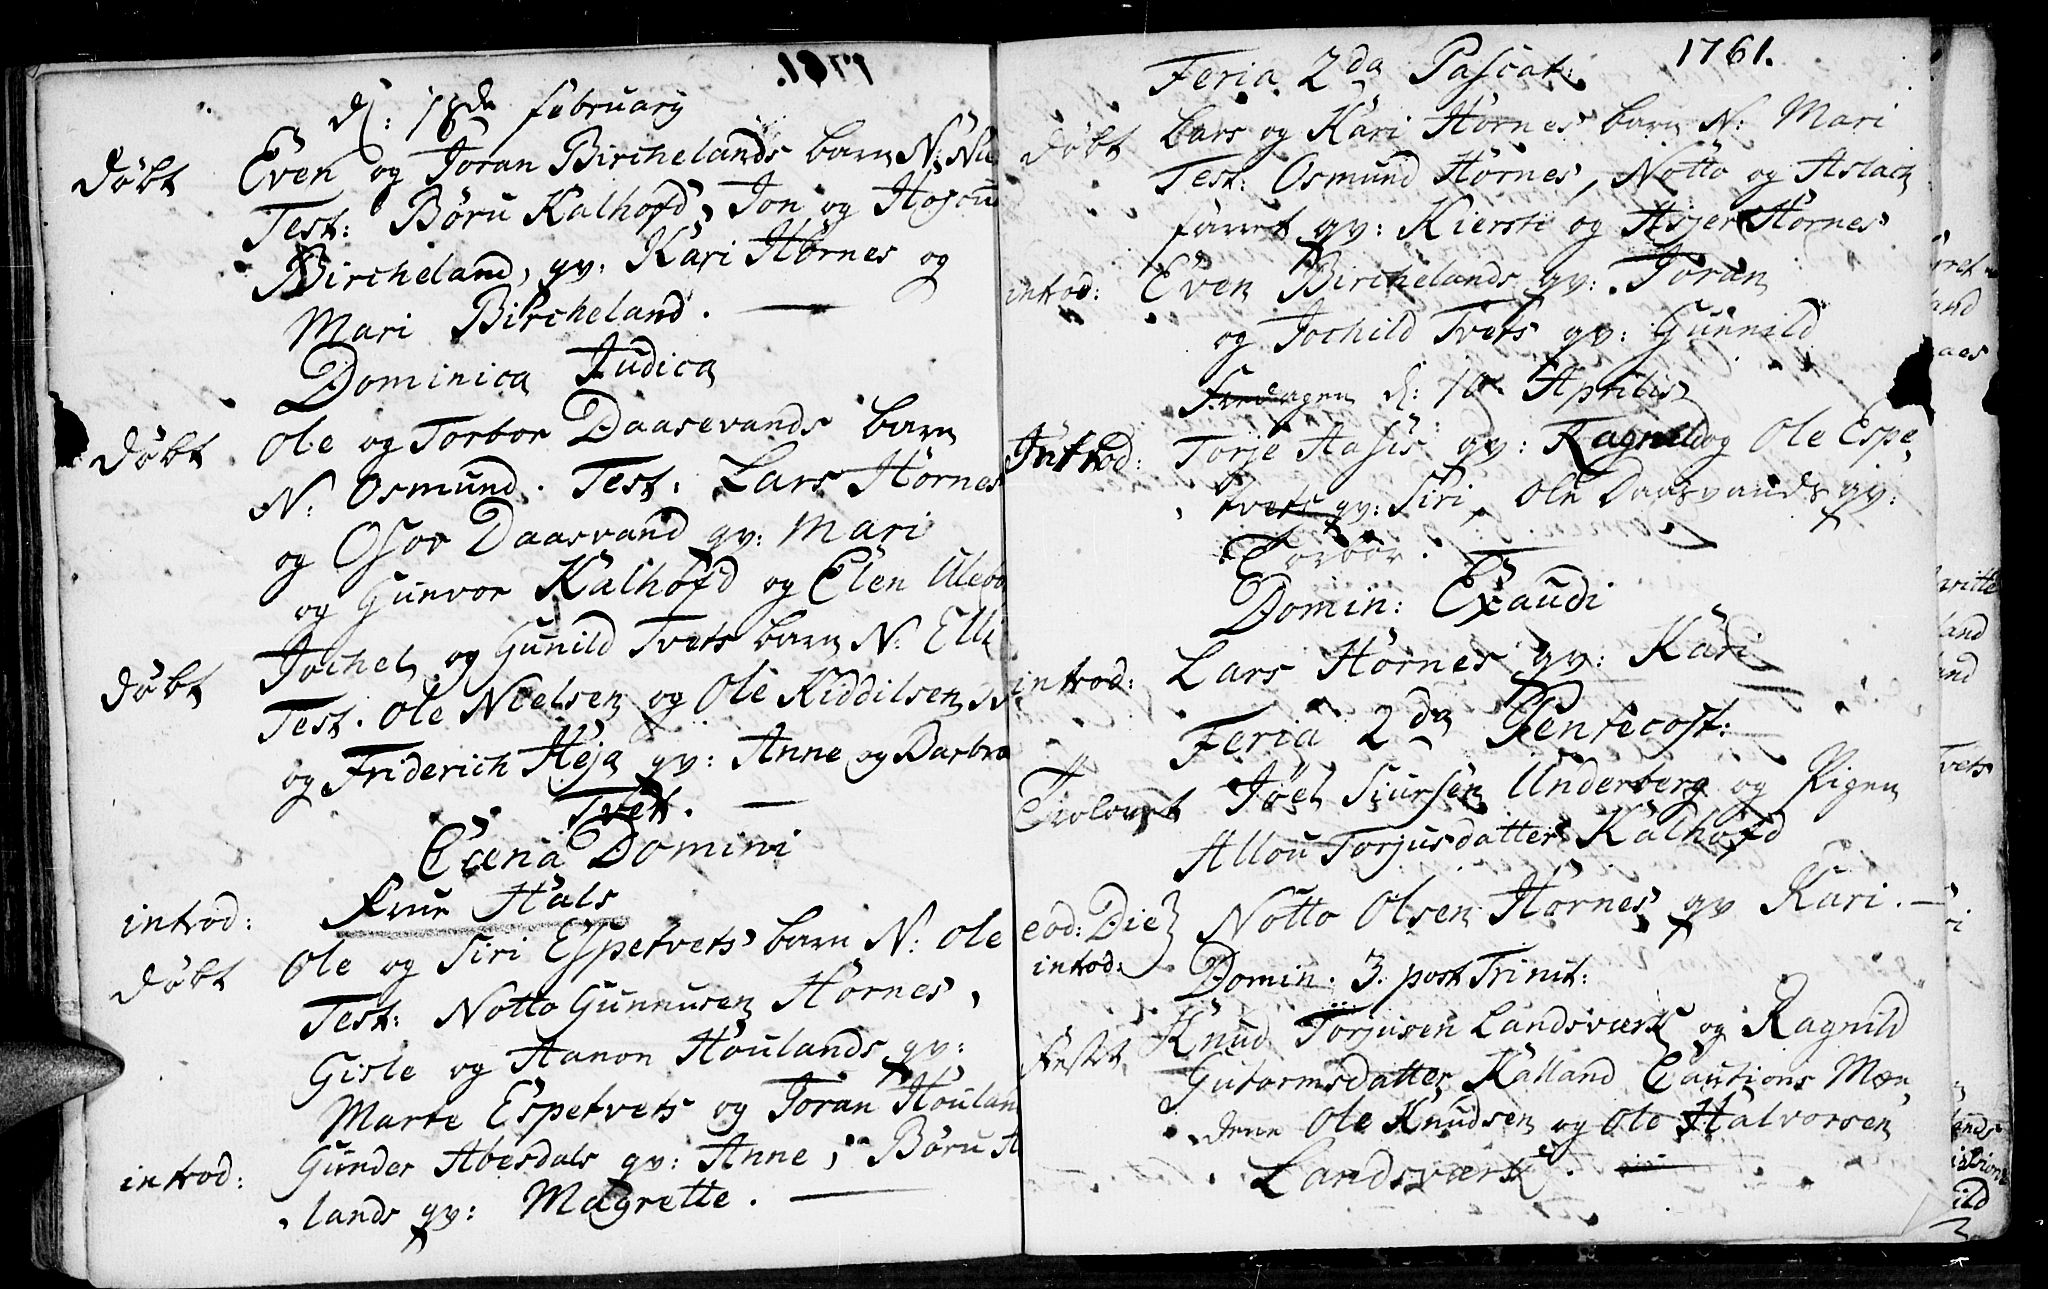 1761.
d: 18de February
Døbt Even og Joran Birchelands barn N: Nie
Test: Børu Kalhofd, Jon og
Bircheland, qv: Kari Hornes og
Mari Bircheland.
Dominica Judica
Døbt Ole og Torbor Daasevands barn
N: Osmund. Test: Lars Hornes
og Osor Daasvand qv: Mari
og Gunvor Kalhofd og Elen
Døbt Jochel og Gunild Tvets barn N: Elli
Test. Ole Nielsen og Ole Kiddilsen
og Friderich Heja qv: Anne og Barbro
Tvett.
Cæna Domini
introd: Frue Hals
Døbt Ole og Siri Espetvets barn N: Ole
Test: Notto Gunnusen Hornes,
Gisle og Aanon Houlands qv:
Marte Espetvets og Joran Houlan
introd: Gunder Abesdals qv: Anne, Børu
lands qv: Magrette.
Feria 2da Pascat: 1761.
Døbt Lars og Kari Hornes barn N: Mari
Test: Osmund Hornes, Notto og Aslach
qv: Kiersti og Asjer Hornes
introd: Even Birchelands qv: Joran
og Jochild Tvets qv: Gunnild
d: 10 Aprilis
Introd: Torje Aasis qv: Ragnild og Ole Espe,
tvets qv: Siri, Ole Daasvands qv:
Torbor.
Domin: Exaudi
introd: Lars Hornes qv: Kari
Feria 2da Pentecost:
Trolovet Joel Siursen Underberg og Pigen
Allou Torjusdatter Kalhofd
eod: Die Notto Olsen Hornes qv Kari.
introd:
Domin. 3. post Trinit:
Festet, Knud Torjusen Landsværk og Ragnild
Gutormsdatter Kalland Cautions Mæn,
dene Ole Knudsen og Ole Halvorsen
Landsværk.